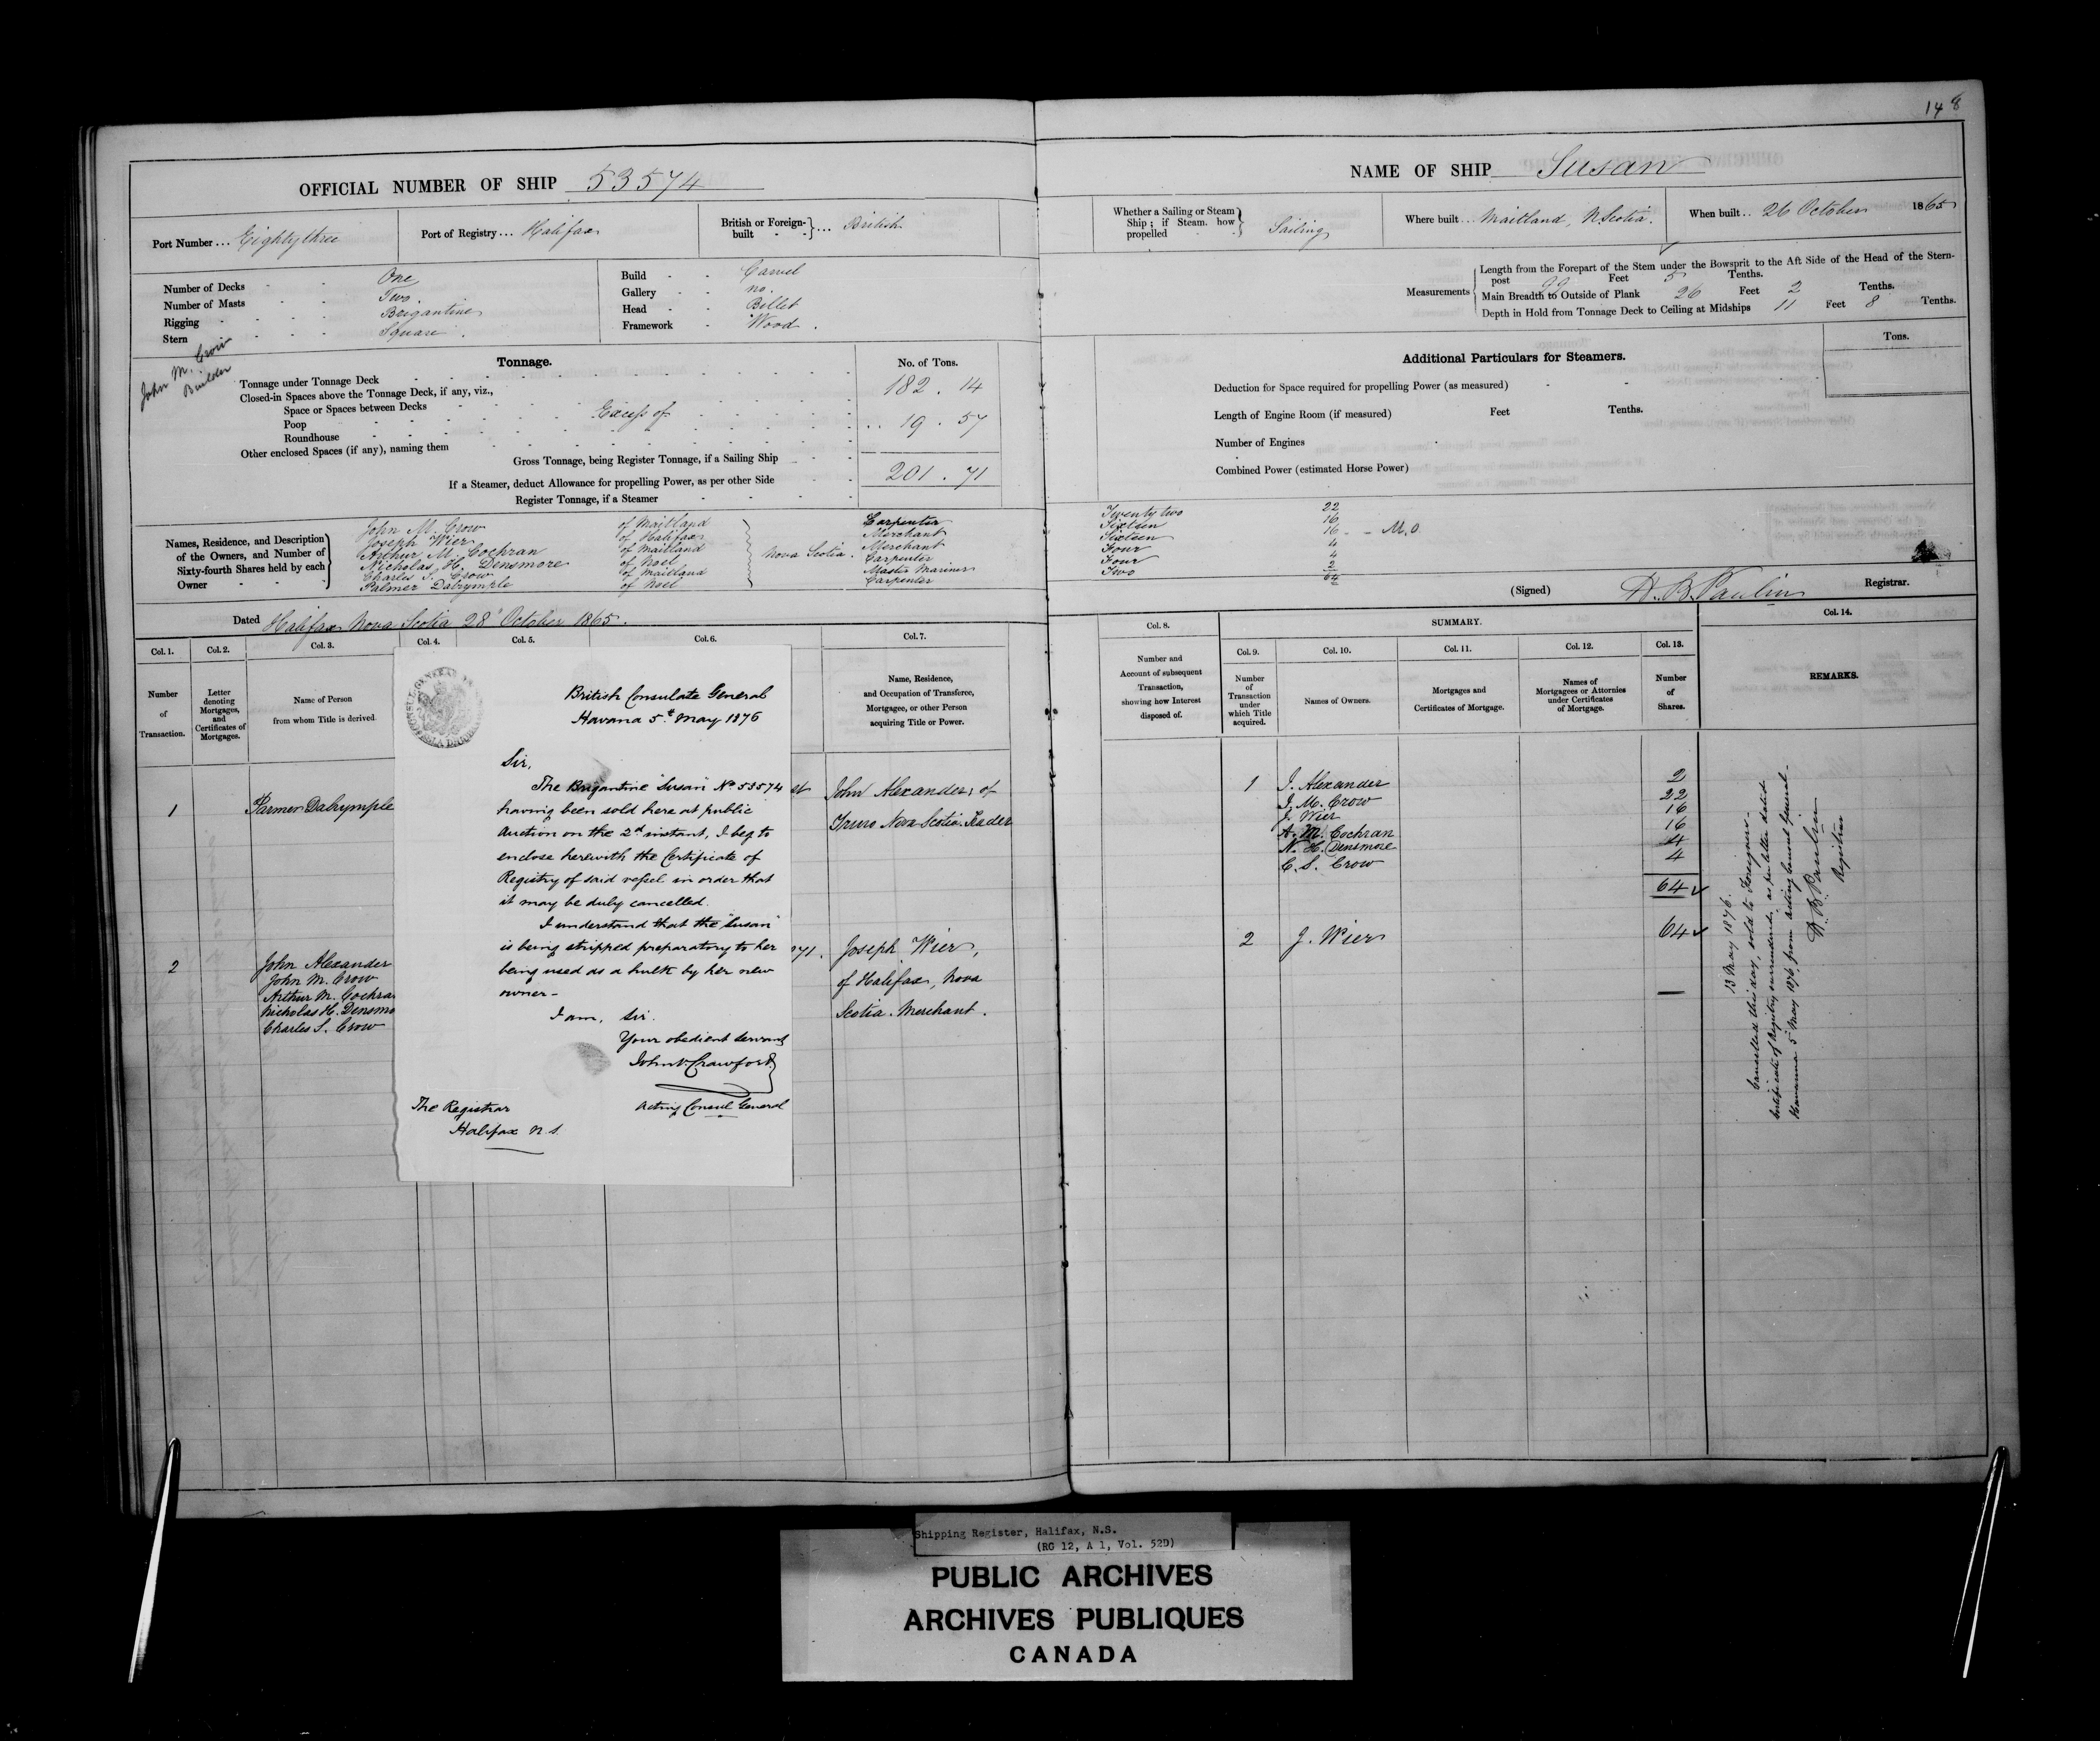 148
OFFICIAL NUMBER OF SHIP 53574
Port Number ... Eighty three
Port of Registry ... Halifax
British or Foreign-built } ... British
Number of Decks - - One
Number of Masts - - Two.
Rigging - - - Brigantine
Stern - - - Square.
Build - - Carvel
Gallery - - no.
Head - - Billet
Framework - Wood.
John M. Crow
Builder
Tonnage.
No. of Tons.
Tonnage under Tonnage Deck 182.14
Closed-in Spaces above the Tonnage Deck, if any, viz.,
Space or Spaces between Decks
Poop Excess of .. 19.57
Roundhouse
Other enclosed Spaces (if any), naming them
Gross Tonnage, being Register Tonnage, if a Sailing Ship 201.71
If a Steamer, deduct Allowance for propelling Power, as per other Side
Register Tonnage, if a Steamer
Names, Residence, and Description of the Owners, and Number of Sixty-fourth Shares held by each Owner
John M. Crow of Maitland Carpenter
Joseph Wier of Halifax Merchant
Arthur M. Cochran of Maitland Merchant
Nicholas H. Densmore of Noel Carpenter
Charles S. Crow of Maitland Master Mariner
Palmer Dalrymple of Noel Carpenter
Nova Scotia.
Dated Halifax Nova Scotia 28th October 1865.
Col. 1. Col. 2. Col. 3. Col. 4. Col. 5. Col. 6. Col. 7.
Number of Transaction.
Letter denoting Mortgages, and Certificates of Mortgages.
Name of Person from whom Title is derived.
Name, Residence, and Occupation of Transferee, Mortgagee, or other Person acquiring Title or Power.
1 Palmer Dalrymple
John Alexander, of
Truro Nova Scotia. Trader
2 John Alexander
John M. Crow
Arthur M. Cochra
Nicholas H. Densmo
Charles S. Crow
71. Joseph Wier,
of Halifax, Nova
Scotia. Merchant.
British Consulate General
Havana 5th May 1876
Sir,
The Brigantine "Susan" No 53574
having been sold here at public
auction on the 2d instant, I beg to
enclose herewith the Certificate of
Registry of said vessel in order that
it may be duly cancelled.
I understand that the "Susan"
is being stripped preparatory to her
being used as a hulk by her new
owner -
I am, Sir.
Your obedient Servant
John V. Crawford
Acting Consul General
The Registrar
Halifax N.S.
NAME OF SHIP Susan
Whether a Sailing or Steam Ship; if Steam. how propelled } Sailing
Where built ... Maitland, N. Scotia.
When built .. 26 October 1865
Measurements
Length from the Forepart of the Stem under the Bowsprit to the Aft Side of the Head of the Stern-
post 99 Feet 5 Tenths.
Main Breadth to Outside of Plank 26 Feet 2 Tenths.
Depth in Hold from Tonnage Deck to Ceiling at Midships 11 Feet 8 Tenths.
Additional Particulars for Steamers.
Tons.
Deduction for Space required for propelling Power (as measured)
Length of Engine Room (if measured) Feet Tenths.
Number of Engines
Combined Power (estimated Horse Power)
Twenty two 22
Sixteen 16
Sixteen 16 - - M.O.
Four 4
Four 4
Two 2
64
(Signed) H. B. Paulin Registrar.
Col. 8.
Number and Account of subsequent Transaction, showing how Interest disposed of.
SUMMARY.
Col. 9. Col. 10. Col. 11. Col. 12. Col. 13. Col. 14.
Number of Transaction under which Title acquired.
Names of Owners.
Mortgages and Certificates of Mortgage.
Names of Mortgagees or Attornies under Certificates of Mortgage.
Number of Shares.
REMARKS.
1 J. Alexander 2
J. M. Crow 22
J. Wier 16
A. M. Cochran 16
N. H. Densmore 4
C. S. Crow 4
64
2 J. Wier 64
13 May 1876.
Cancelled this day, sold to Foreigners -
Certificate of Registry surrendered, as per letter dated
Havanna 5th May 1876, from acting Consul General -
H. B. Paulin
Registrar
Shipping Register, Halifax, N.S.
(RG 12, A 1, Vol. 52D)
PUBLIC ARCHIVES
ARCHIVES PUBLIQUES
CANADA